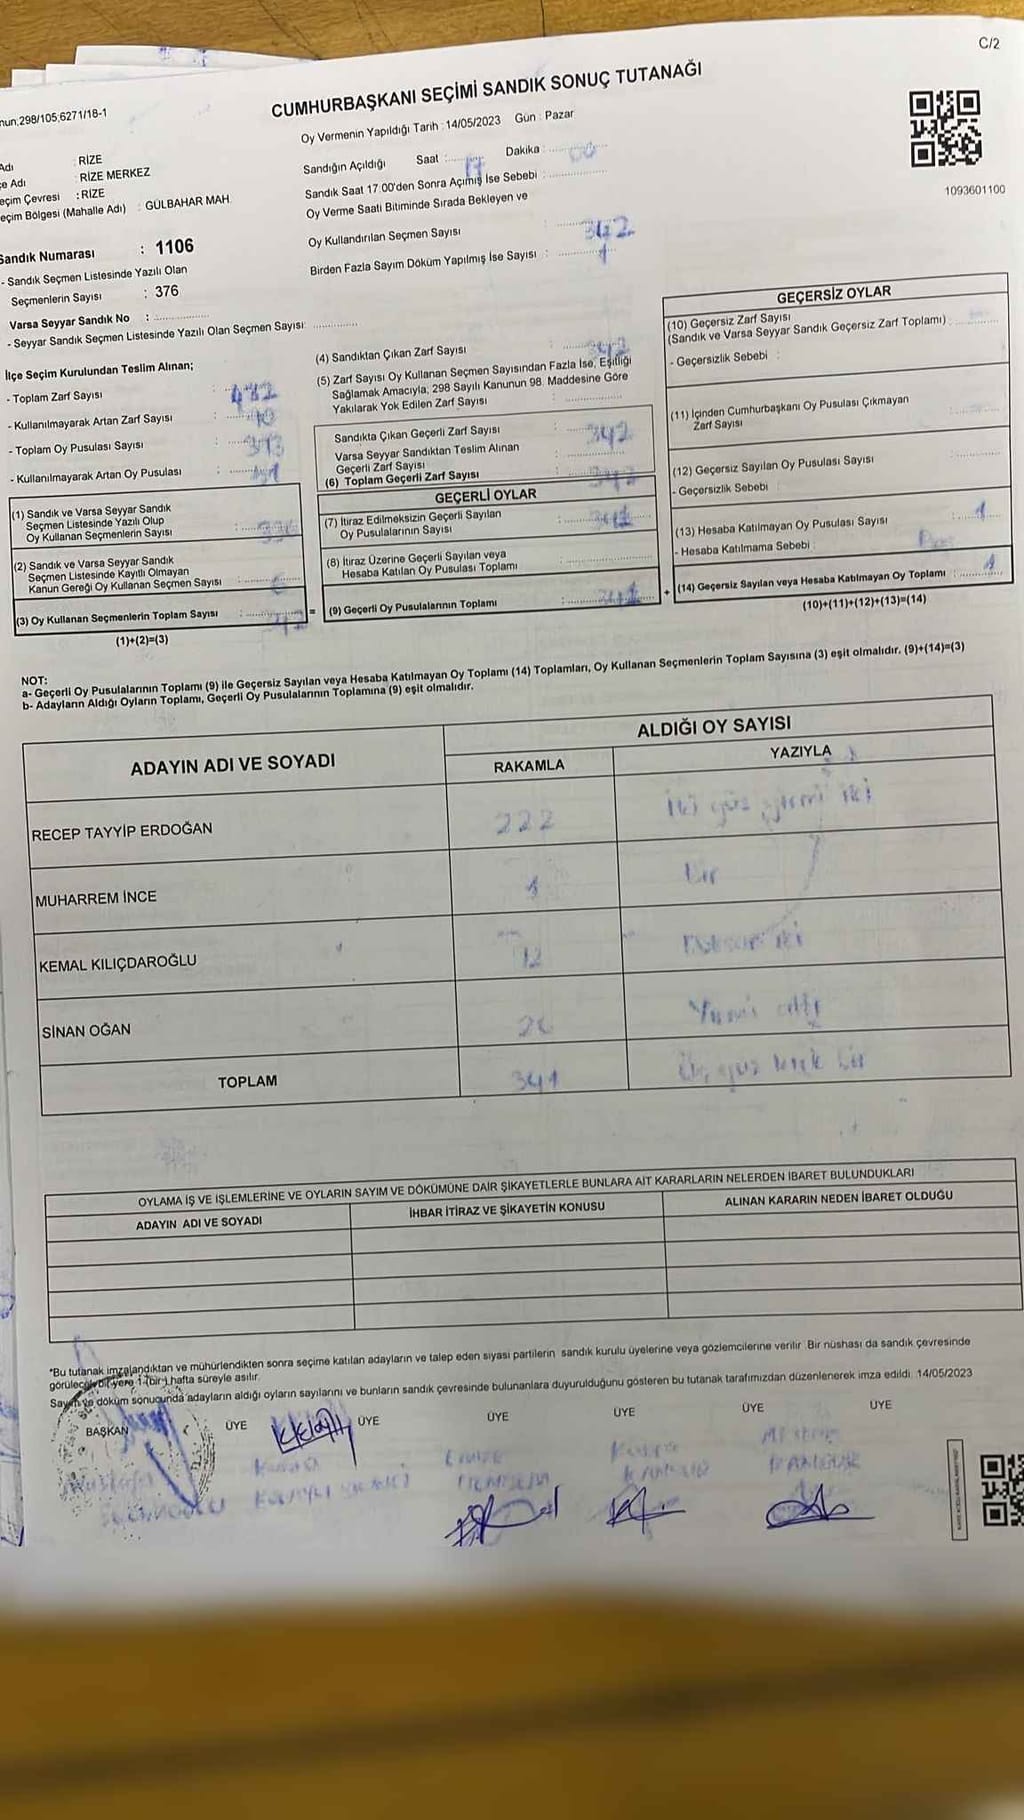 C/2
CUMHURBAŞKANI SEÇİMİ SANDIK SONUÇ TUTANAĞI
nun;298/105;6271/18-1
Oy Vermenin Yapıldığı Tarih : 14/05/2023 Gün : Pazar
Adı : RİZE
çe Adı : RİZE MERKEZ
eçim Çevresi : RİZE
eçim Bölgesi (Mahalle Adı) : GÜLBAHAR MAH.
Sandığın Açıldığı Saat : 17 Dakika : 00
Sandık Saat 17:00'den Sonra Açımış İse Sebebi :
Oy Verme Saati Bitiminde Sırada Bekleyen ve
Oy Kullandırılan Seçmen Sayısı : 342
Birden Fazla Sayım Döküm Yapılmış İse Sayısı : 1
1093601100
Sandık Numarası : 1106
- Sandık Seçmen Listesinde Yazılı Olan
Seçmenlerin Sayısı : 376
Varsa Seyyar Sandık No :
- Seyyar Sandık Seçmen Listesinde Yazılı Olan Seçmen Sayısı:
İlçe Seçim Kurulundan Teslim Alınan;
- Toplam Zarf Sayısı :
- Kullanılmayarak Artan Zarf Sayısı :
- Toplam Oy Pusulası Sayısı :
- Kullanılmayarak Artan Oy Pusulası :
(1) Sandık ve Varsa Seyyar Sandık
Seçmen Listesinde Yazılı Olup
Oy Kullanan Seçmenlerin Sayısı : 336
(2) Sandık ve Varsa Seyyar Sandık
Seçmen Listesinde Kayıtlı Olmayan
Kanun Gereği Oy Kullanan Seçmen Sayısı : 6
(3) Oy Kullanan Seçmenlerin Toplam Sayısı : 342
(1)+(2)=(3)
(4) Sandıktan Çıkan Zarf Sayısı : 342
(5) Zarf Sayısı Oy Kullanan Seçmen Sayısından Fazla İse, Eşitliği
Sağlamak Amacıyla, 298 Sayılı Kanunun 98. Maddesine Göre
Yakılarak Yok Edilen Zarf Sayısı :
Sandıkta Çıkan Geçerli Zarf Sayısı : 342
Varsa Seyyar Sandıktan Teslim Alınan
Geçerli Zarf Sayısı :
(6) Toplam Geçerli Zarf Sayısı : 342
GEÇERLİ OYLAR
(7) İtiraz Edilmeksizin Geçerli Sayılan
Oy Pusulalarının Sayısı : 341
(8) İtiraz Üzerine Geçerli Sayılan veya
Hesaba Katılan Oy Pusulası Toplamı :
= (9) Geçerli Oy Pusulalarının Toplamı : 341
GEÇERSİZ OYLAR
(10) Geçersiz Zarf Sayısı
(Sandık ve Varsa Seyyar Sandık Geçersiz Zarf Toplamı) :
- Geçersizlik Sebebi :
(11) İçinden Cumhurbaşkanı Oy Pusulası Çıkmayan
Zarf Sayısı :
(12) Geçersiz Sayılan Oy Pusulası Sayısı :
- Geçersizlik Sebebi :
(13) Hesaba Katılmayan Oy Pusulası Sayısı : 1
- Hesaba Katılmama Sebebi :
+ (14) Geçersiz Sayılan veya Hesaba Katılmayan Oy Toplamı : 1
(10)+(11)+(12)+(13)=(14)
NOT:
a- Geçerli Oy Pusulalarının Toplamı (9) ile Geçersiz Sayılan veya Hesaba Katılmayan Oy Toplamı (14) Toplamları, Oy Kullanan Seçmenlerin Toplam Sayısına (3) eşit olmalıdır. (9)+(14)=(3)
b- Adayların Aldığı Oyların Toplamı, Geçerli Oy Pusulalarının Toplamına (9) eşit olmalıdır.
ADAYIN ADI VE SOYADI
ALDIĞI OY SAYISI
RAKAMLA YAZIYLA
RECEP TAYYİP ERDOĞAN 222 iki yüz yirmi iki
MUHARREM İNCE 1 bir
KEMAL KILIÇDAROĞLU iki
SİNAN OĞAN 26 Yirmi altı
TOPLAM 341 Üç yüz kırk bir
OYLAMA İŞ VE İŞLEMLERİNE VE OYLARIN SAYIM VE DÖKÜMÜNE DAİR ŞİKAYETLERLE BUNLARA AİT KARARLARIN NELERDEN İBARET BULUNDUKLARI
ADAYIN ADI VE SOYADI İHBAR İTİRAZ VE ŞİKAYETİN KONUSU ALINAN KARARIN NEDEN İBARET OLDUĞU
*Bu tutanak imzalandıktan ve mühürlendikten sonra seçime katılan adayların ve talep eden siyasi partilerin sandık kurulu üyelerine veya gözlemcilerine verilir. Bir nüshası da sandık çevresinde
görülecek bir yere 1 (bir) hafta süreyle asılır.
Sayım ve döküm sonucunda adayların aldığı oyların sayılarını ve bunların sandık çevresinde bulunanlara duyurulduğunu gösteren bu tutanak tarafımızdan düzenlenerek imza edildi. 14/05/2023
BAŞKAN ÜYE ÜYE ÜYE ÜYE ÜYE ÜYE